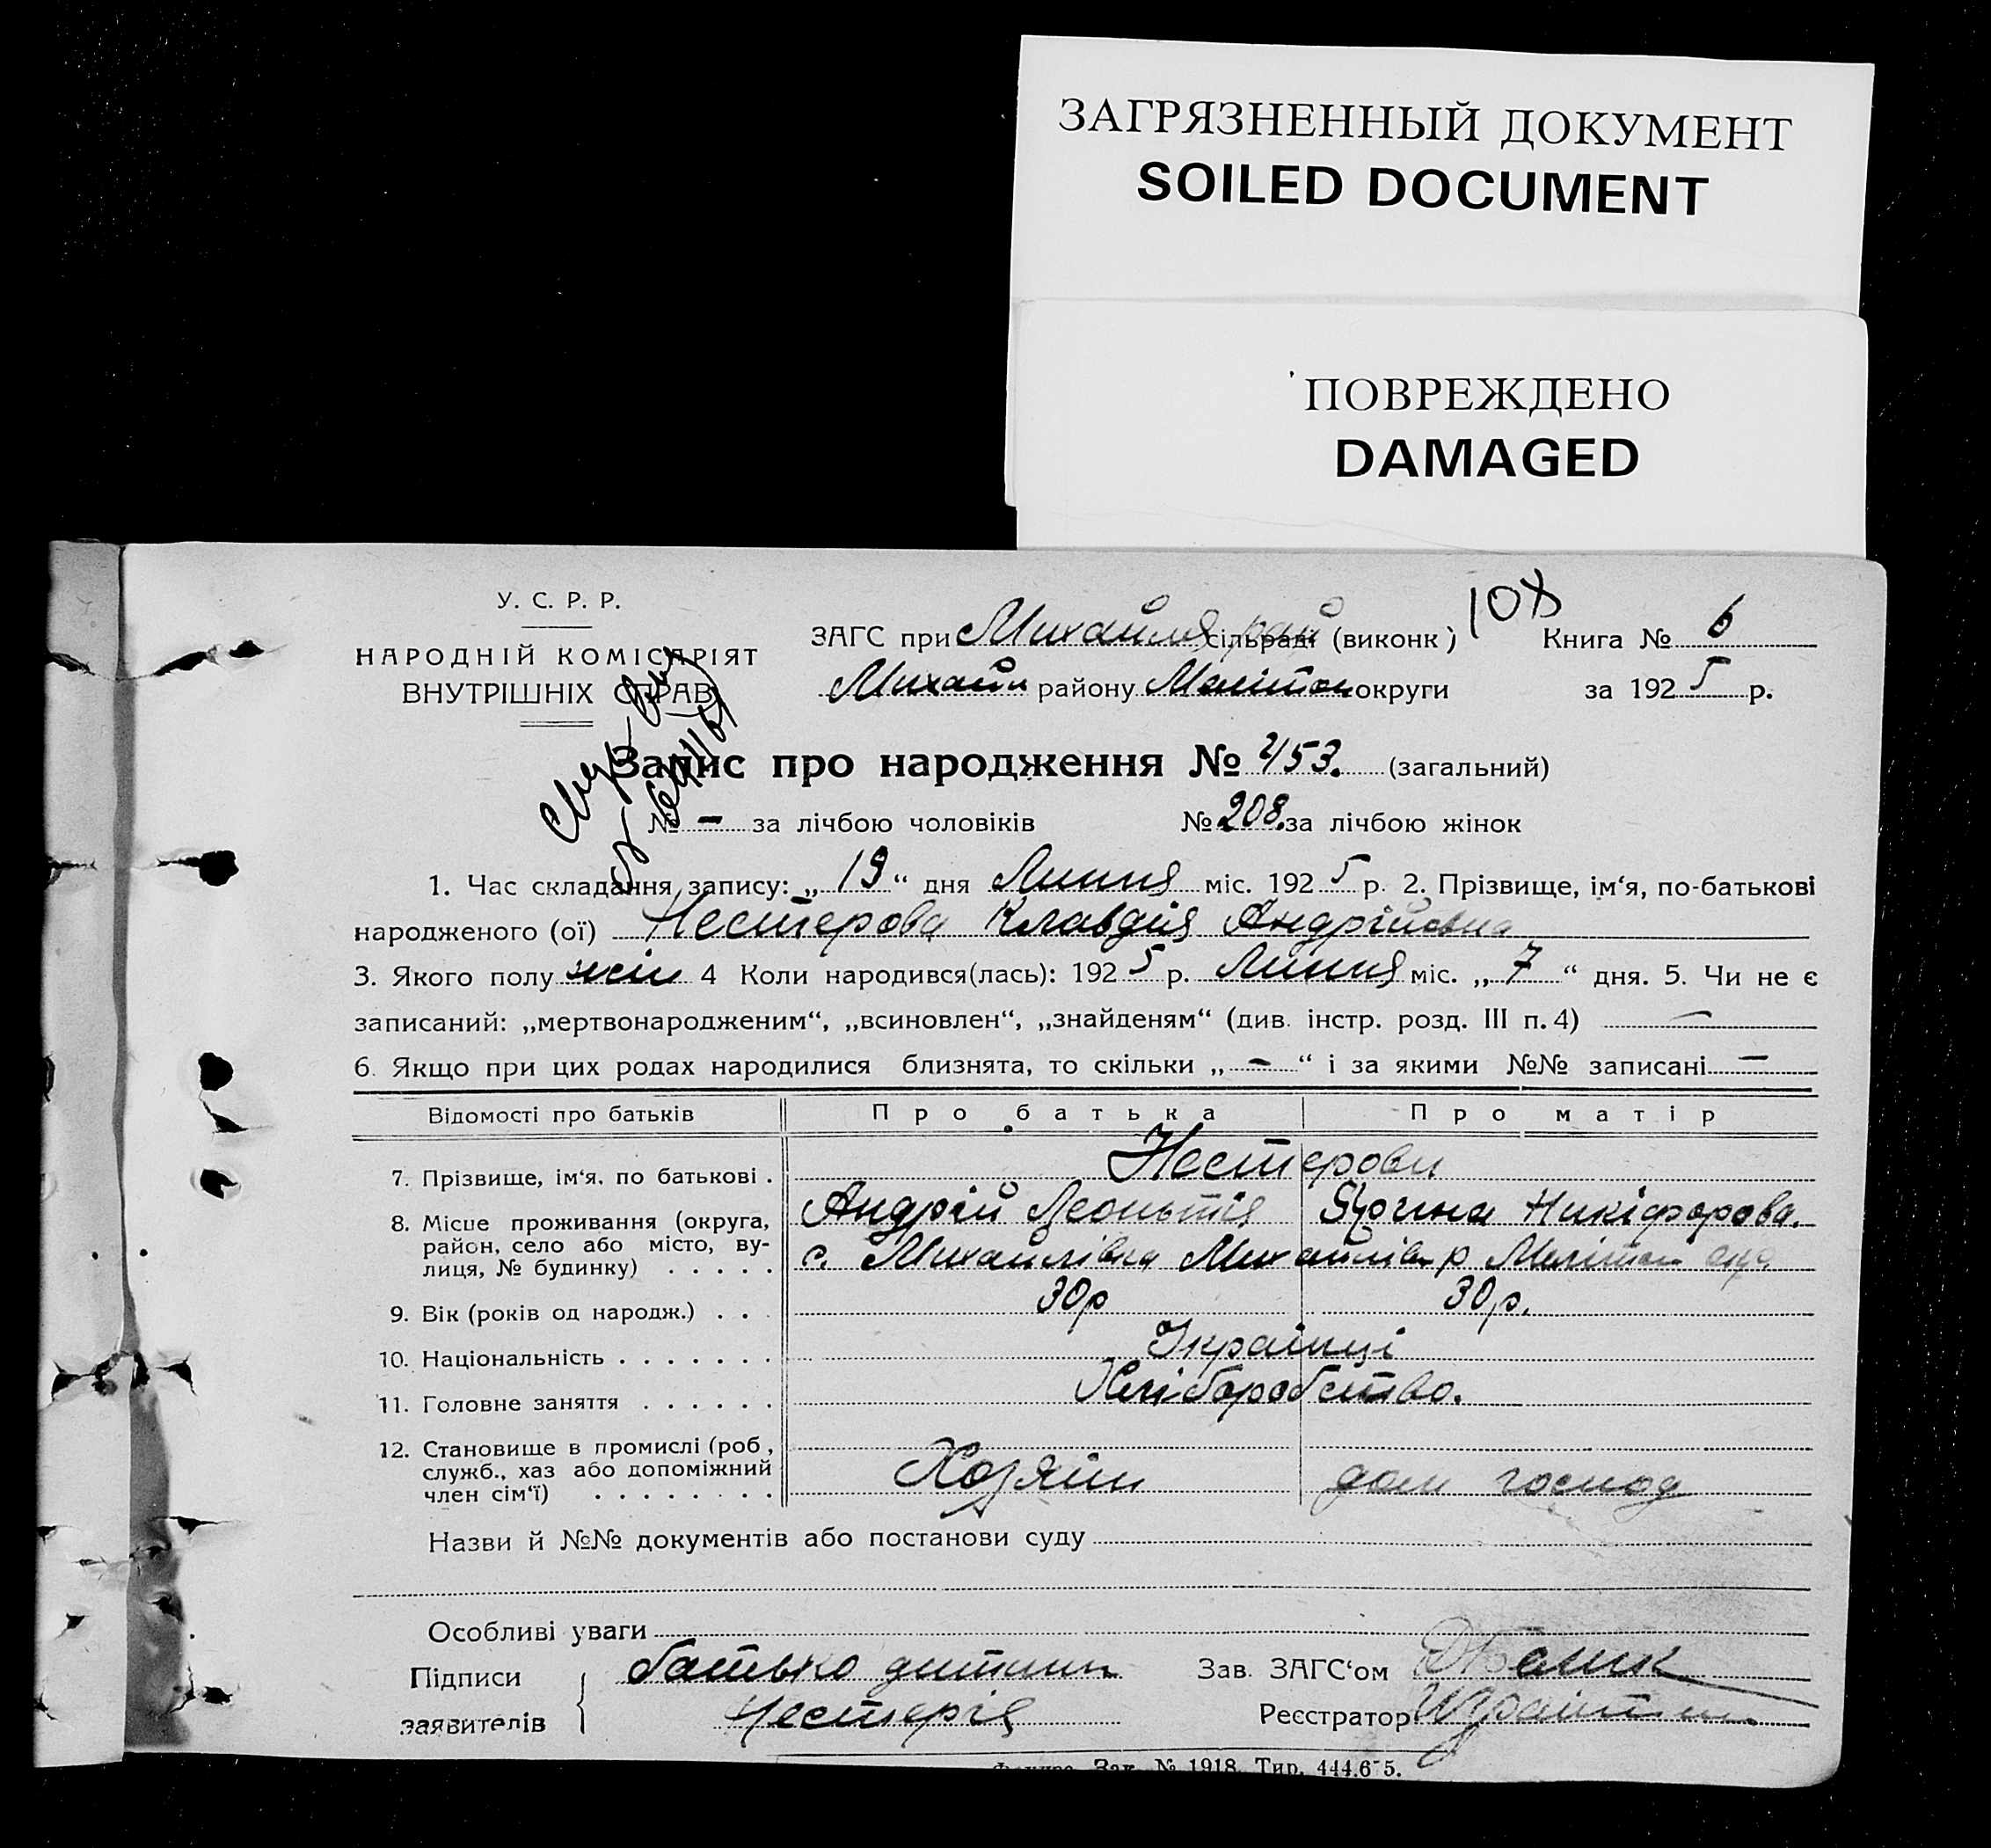 ЗАГРЯЗНЕННЫЙ ДОКУМЕНТ
SOILED DOCUMENT
ПОВРЕЖДЕНО
DAMAGED
У. С. Р. Р.
НАРОДНІЙ КОМІСАРІЯТ
ВНУТРІШНІХ СПРАВ
108
ЗАГС при Михайлів рай сільраді (виконк) Книга № 6
Михайл району Мелітоп округи за 1925 р.
Запис про народження № 453. (загальний)
№ - за лічбою чоловіків № 208. за лічбою жінок
1. Час складання запису: „19“ дня Липня міс. 1925 р. 2. Прізвище, ім‘я, по-батькові
народженого (ої) Нестерова Клавдія Андрійовна
3. Якого полу жін 4 Коли народився(лась): 1925 р. Липня міс. „7“ дня. 5. Чи не є
записаний: „мертвонародженим“, „всиновлен“, „знайденям“ (див. інстр. розд. III п. 4) —
6. Якщо при цих родах народилися близнята, то скільки „-“ і за якими №№ записані —
Відомості про батьків Про батька Про матір
7. Прізвище, ім‘я, по батькові . Нестерови
Андрій Леонтія Ярина Никіфорова.
8. Місце проживання (округа,
район, село або місто, ву-
лиця, № будинку) . . . . . с. Михайлівка Михайлів р Меліт окр
9. Вік (років од народж.) . . . 30р 30р.
10. Національність . . . . . . . Українці
11. Головне заняття . . . . . . Хліборобство.
12. Становище в промислі (роб.,
служб., хаз або допоміжний
член сім‘ї) . . . . . . . . Хозяїн дом господ
Назви й №№ документів або постанови суду
Особливі уваги
Підписи батько дитини Зав. ЗАГС‘ом
заявителів Нестерів Реєстратор
Зак. № 1918. Тир. 444.675.